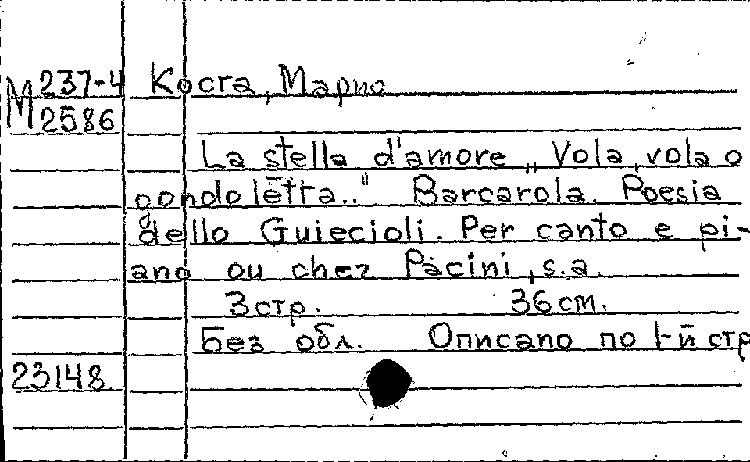 М 237-4 Коста, Марио
2586
La stella d'amore „Vola, vola o
gondoletta.." Barcarola. Poesia
dello Guiecioli. Per canto e pi-
ano ou chez Pacini, s.a.
3 стр. 36 cm.
Без обл. Описано по 1-й стр
23148